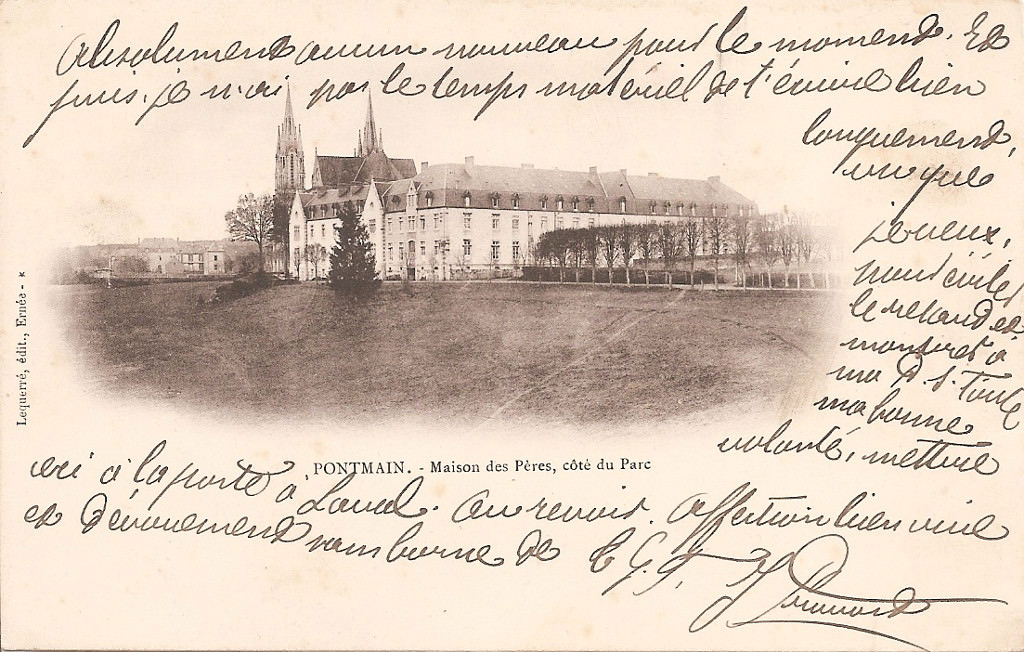 Absolument aucun nouveau pour le moment. Et
puis, je n'ai pas le temps matériel de t'écrire bien
longuement,
vu que
je veux,
pour éviter
le retard et
montrer à
ma P. S. toute
ma bonne
volonté, mettre
ceci à la poste à Laval. Au revoir. Affection bien vive
et dévouement sans borne de
PONTMAIN. - Maison des Pères, côté du Parc
Lequerré, édit., Ernée - *